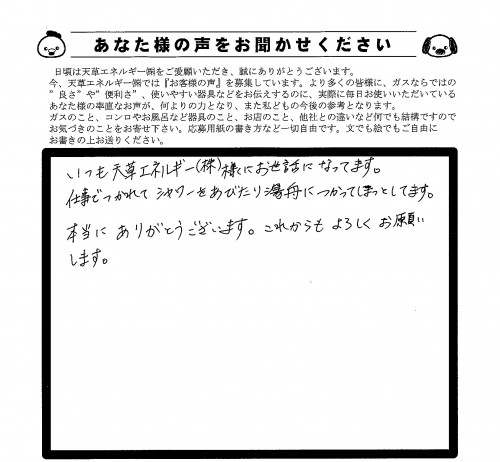 あなた様の声をお聞かせください
日頃は天草エネルギー㈱をご愛顧いただき、誠にありがとうございます。
今、天草エネルギー㈱では『お客様の声』を募集しています。より多くの皆様に、ガスならではの
”良さ”や”便利さ”、使いやすい器具などをお伝えするのに、実際に毎日お使いいただいている
あなた様の率直なお声が、何よりの力となり、また私どもの今後の参考となります。
ガスのこと、コンロやお風呂など器具のこと、お店のこと、他社との違いなど何でも結構ですので
お気づきのことをお寄せ下さい。応募用紙の書き方など一切自由です。文でも絵でもご自由に
お書きの上お送りください。
いつも天草エネルギー(株)様にお世話になってます。
仕事でつかれて シャワーをあびたり湯舟につかってしまっとしてます。
本当に ありがとうございます。これからも よろしく お願い
します。